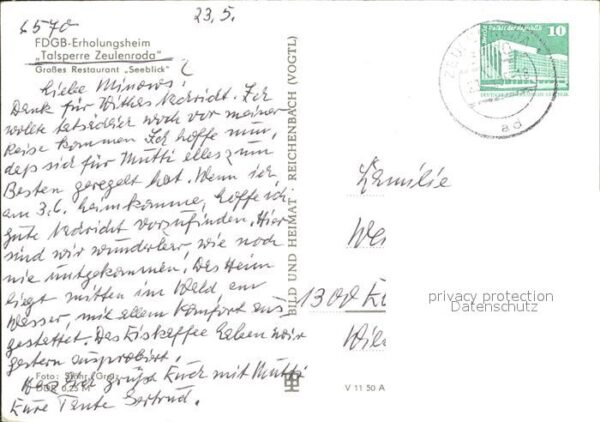 6570 23.5.
FDGB-Erholungsheim
„Talsperre Zeulenroda"
Großes Restaurant „Seeblick"
Liebe Minows!
Dank für Nachricht. Ich
wollte tatsächlich noch vor meiner
Reise kommen Ich hoffe nun,
daß sich für Mutti alles zum
Besten geregelt hat. Wenn ich
am 3.6. heimkomme, hoffe ich
gute Nachricht vorzufinden. Hier
sind wir wunderbar, wie noch
nie untgekommen. Das Heim
liegt mitten im Wald am
Wasser, mit allem Komfort aus
gestattet. Das Eiskaffee haben wir
gestern ausprobiert.
Foto: Stöhr, Greiz
Herzlich grüßt Euch mit Mutti
DDR 0,25 M
Eure Tante Gertrud.
BILD UND HEIMAT · REICHENBACH (VOGTL)
V 11 50 A
Familie
We
1300
Wil
10
ZEULENRODA
ad
privacy protection
Datenschutz